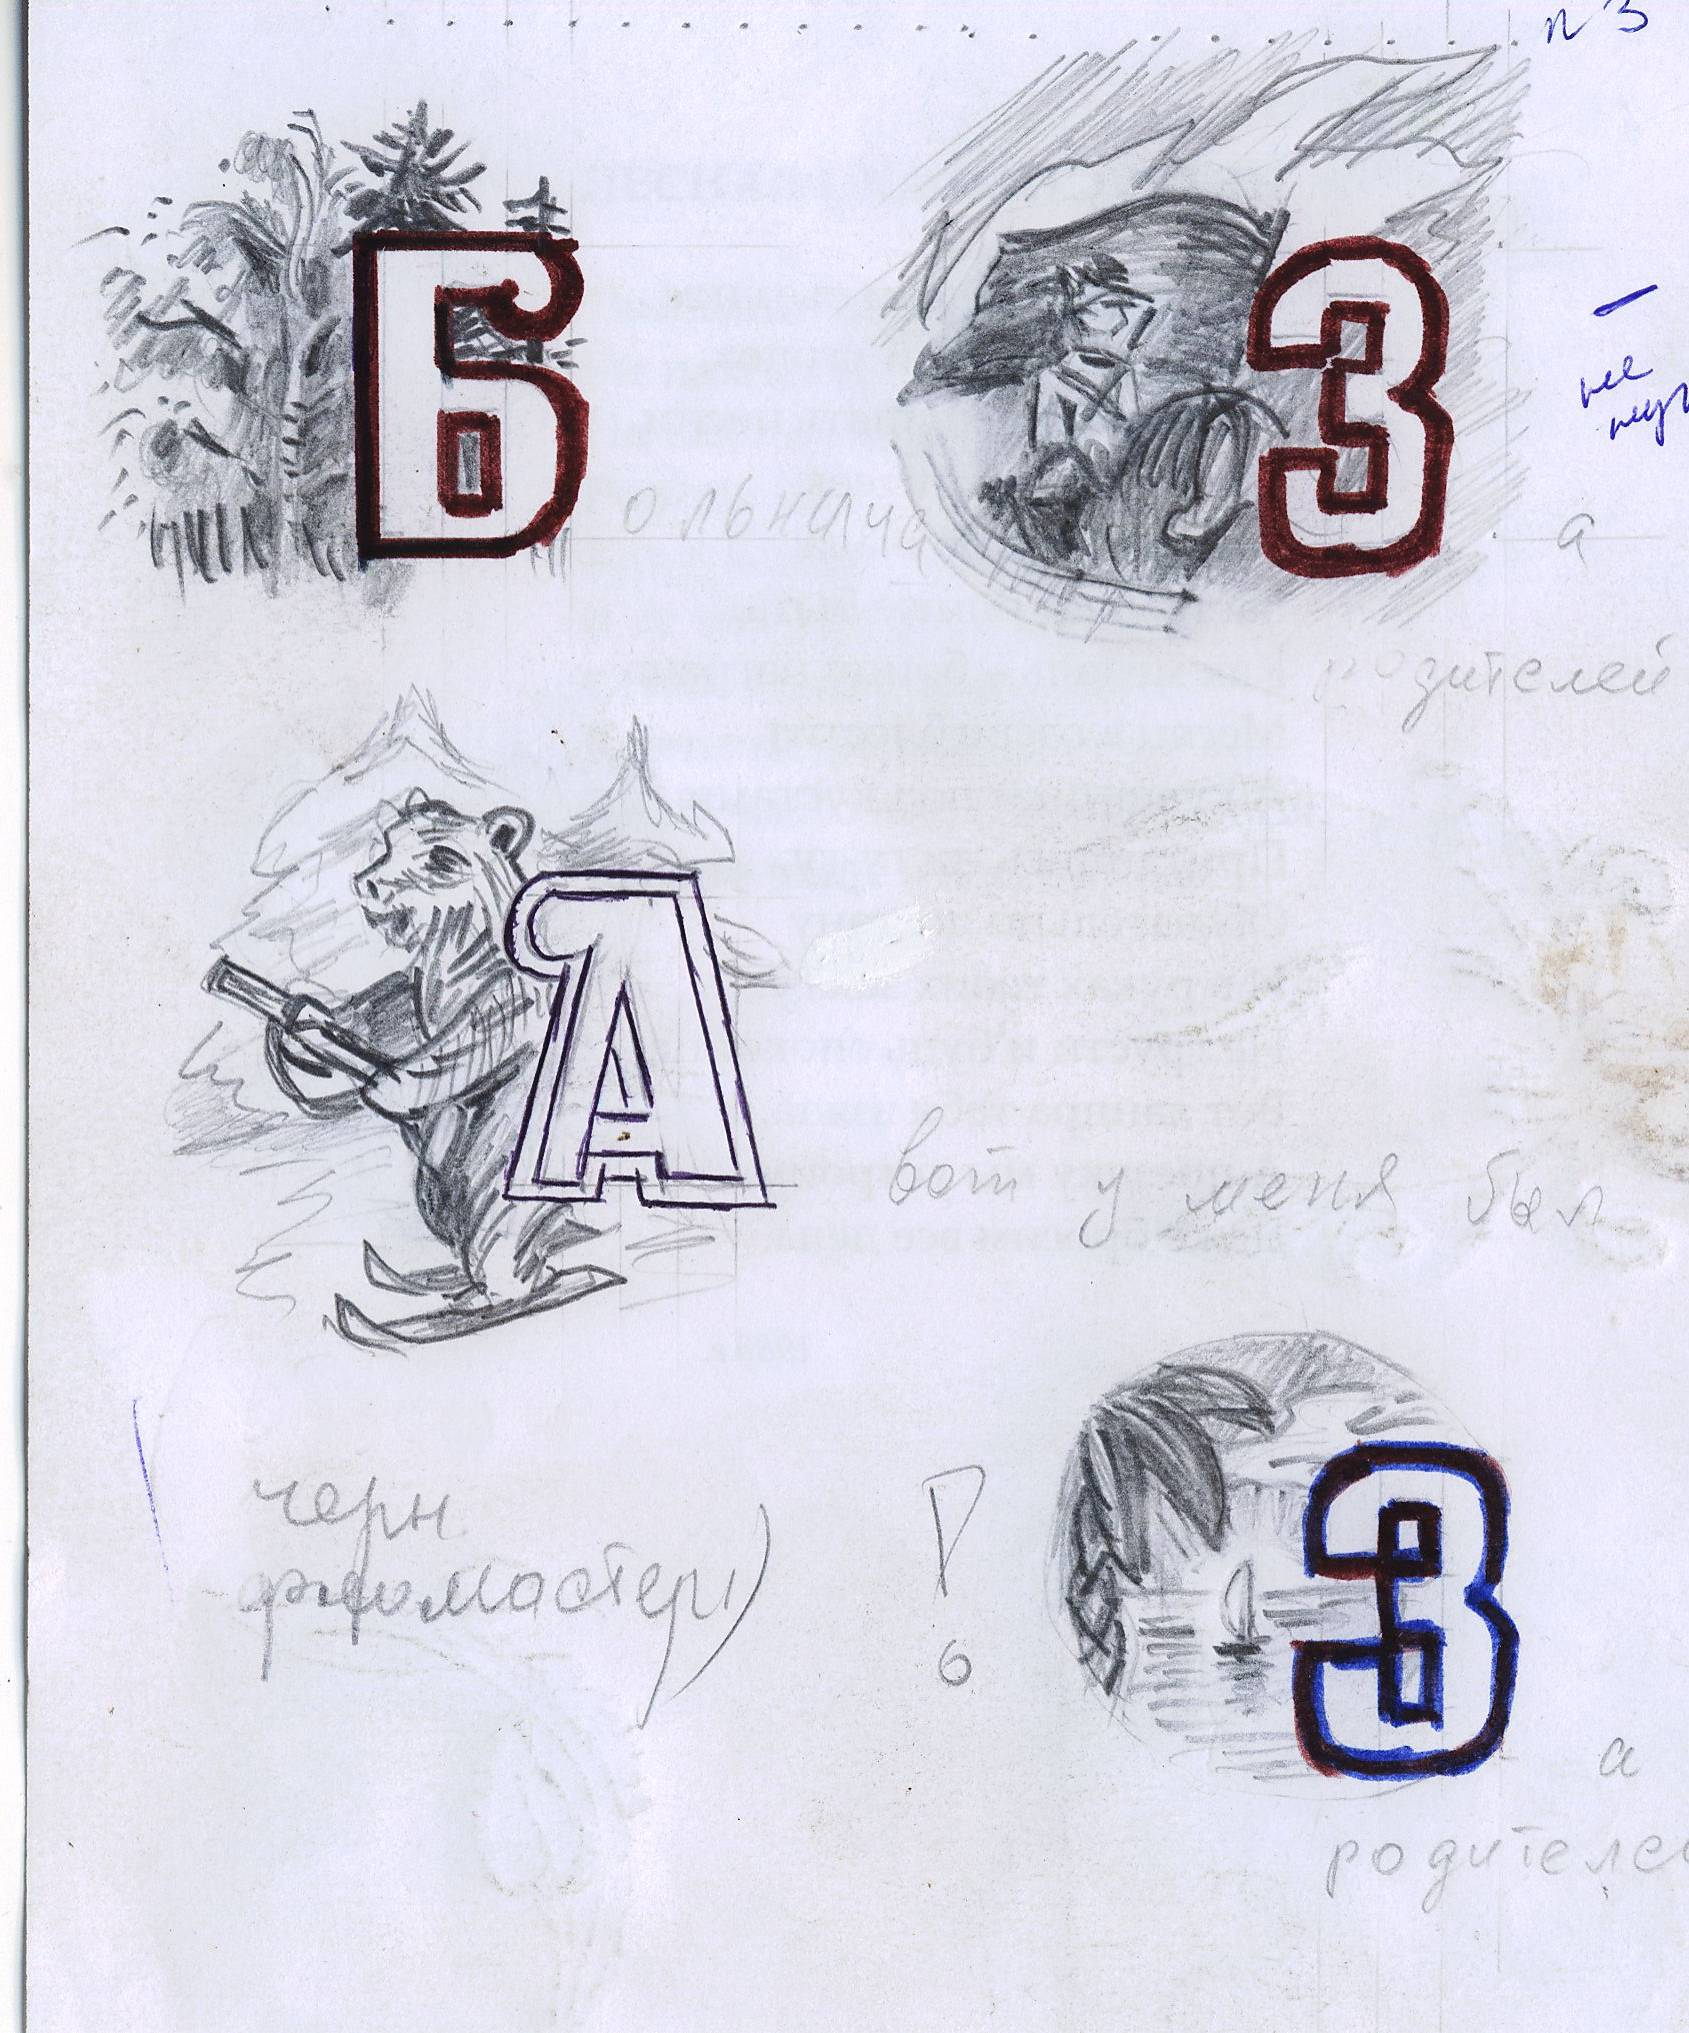 n 3
Б ольнича
З а
родителей
не
А вот у меня был
черн
фломастер)
З а
родителе